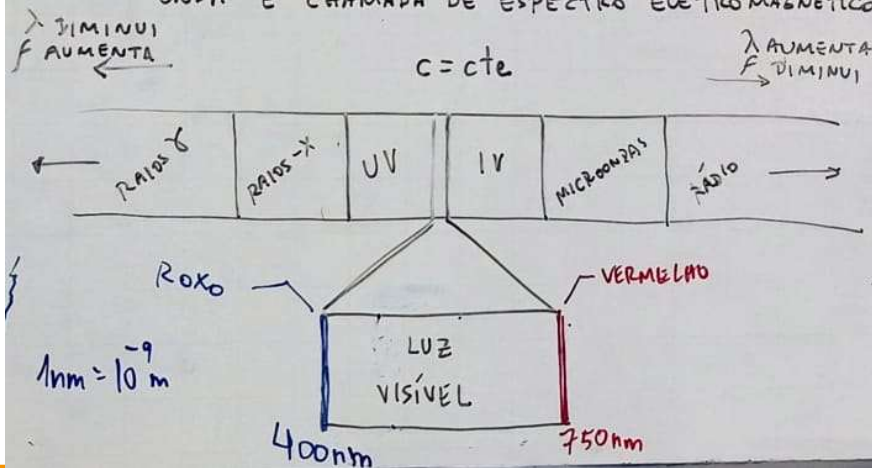 ONDA É CHAMADA DE ESPECTRO ELETROMAGNÉTICO
λ DIMINUI
f AUMENTA
c = cte
λ AUMENTA
f DIMINUI
RAIOS γ
RAIOS-X
UV
IV
MICROONDAS
RÁDIO
ROXO
VERMELHO
LUZ
VISÍVEL
1nm = 10⁻⁹ m
400nm
750nm